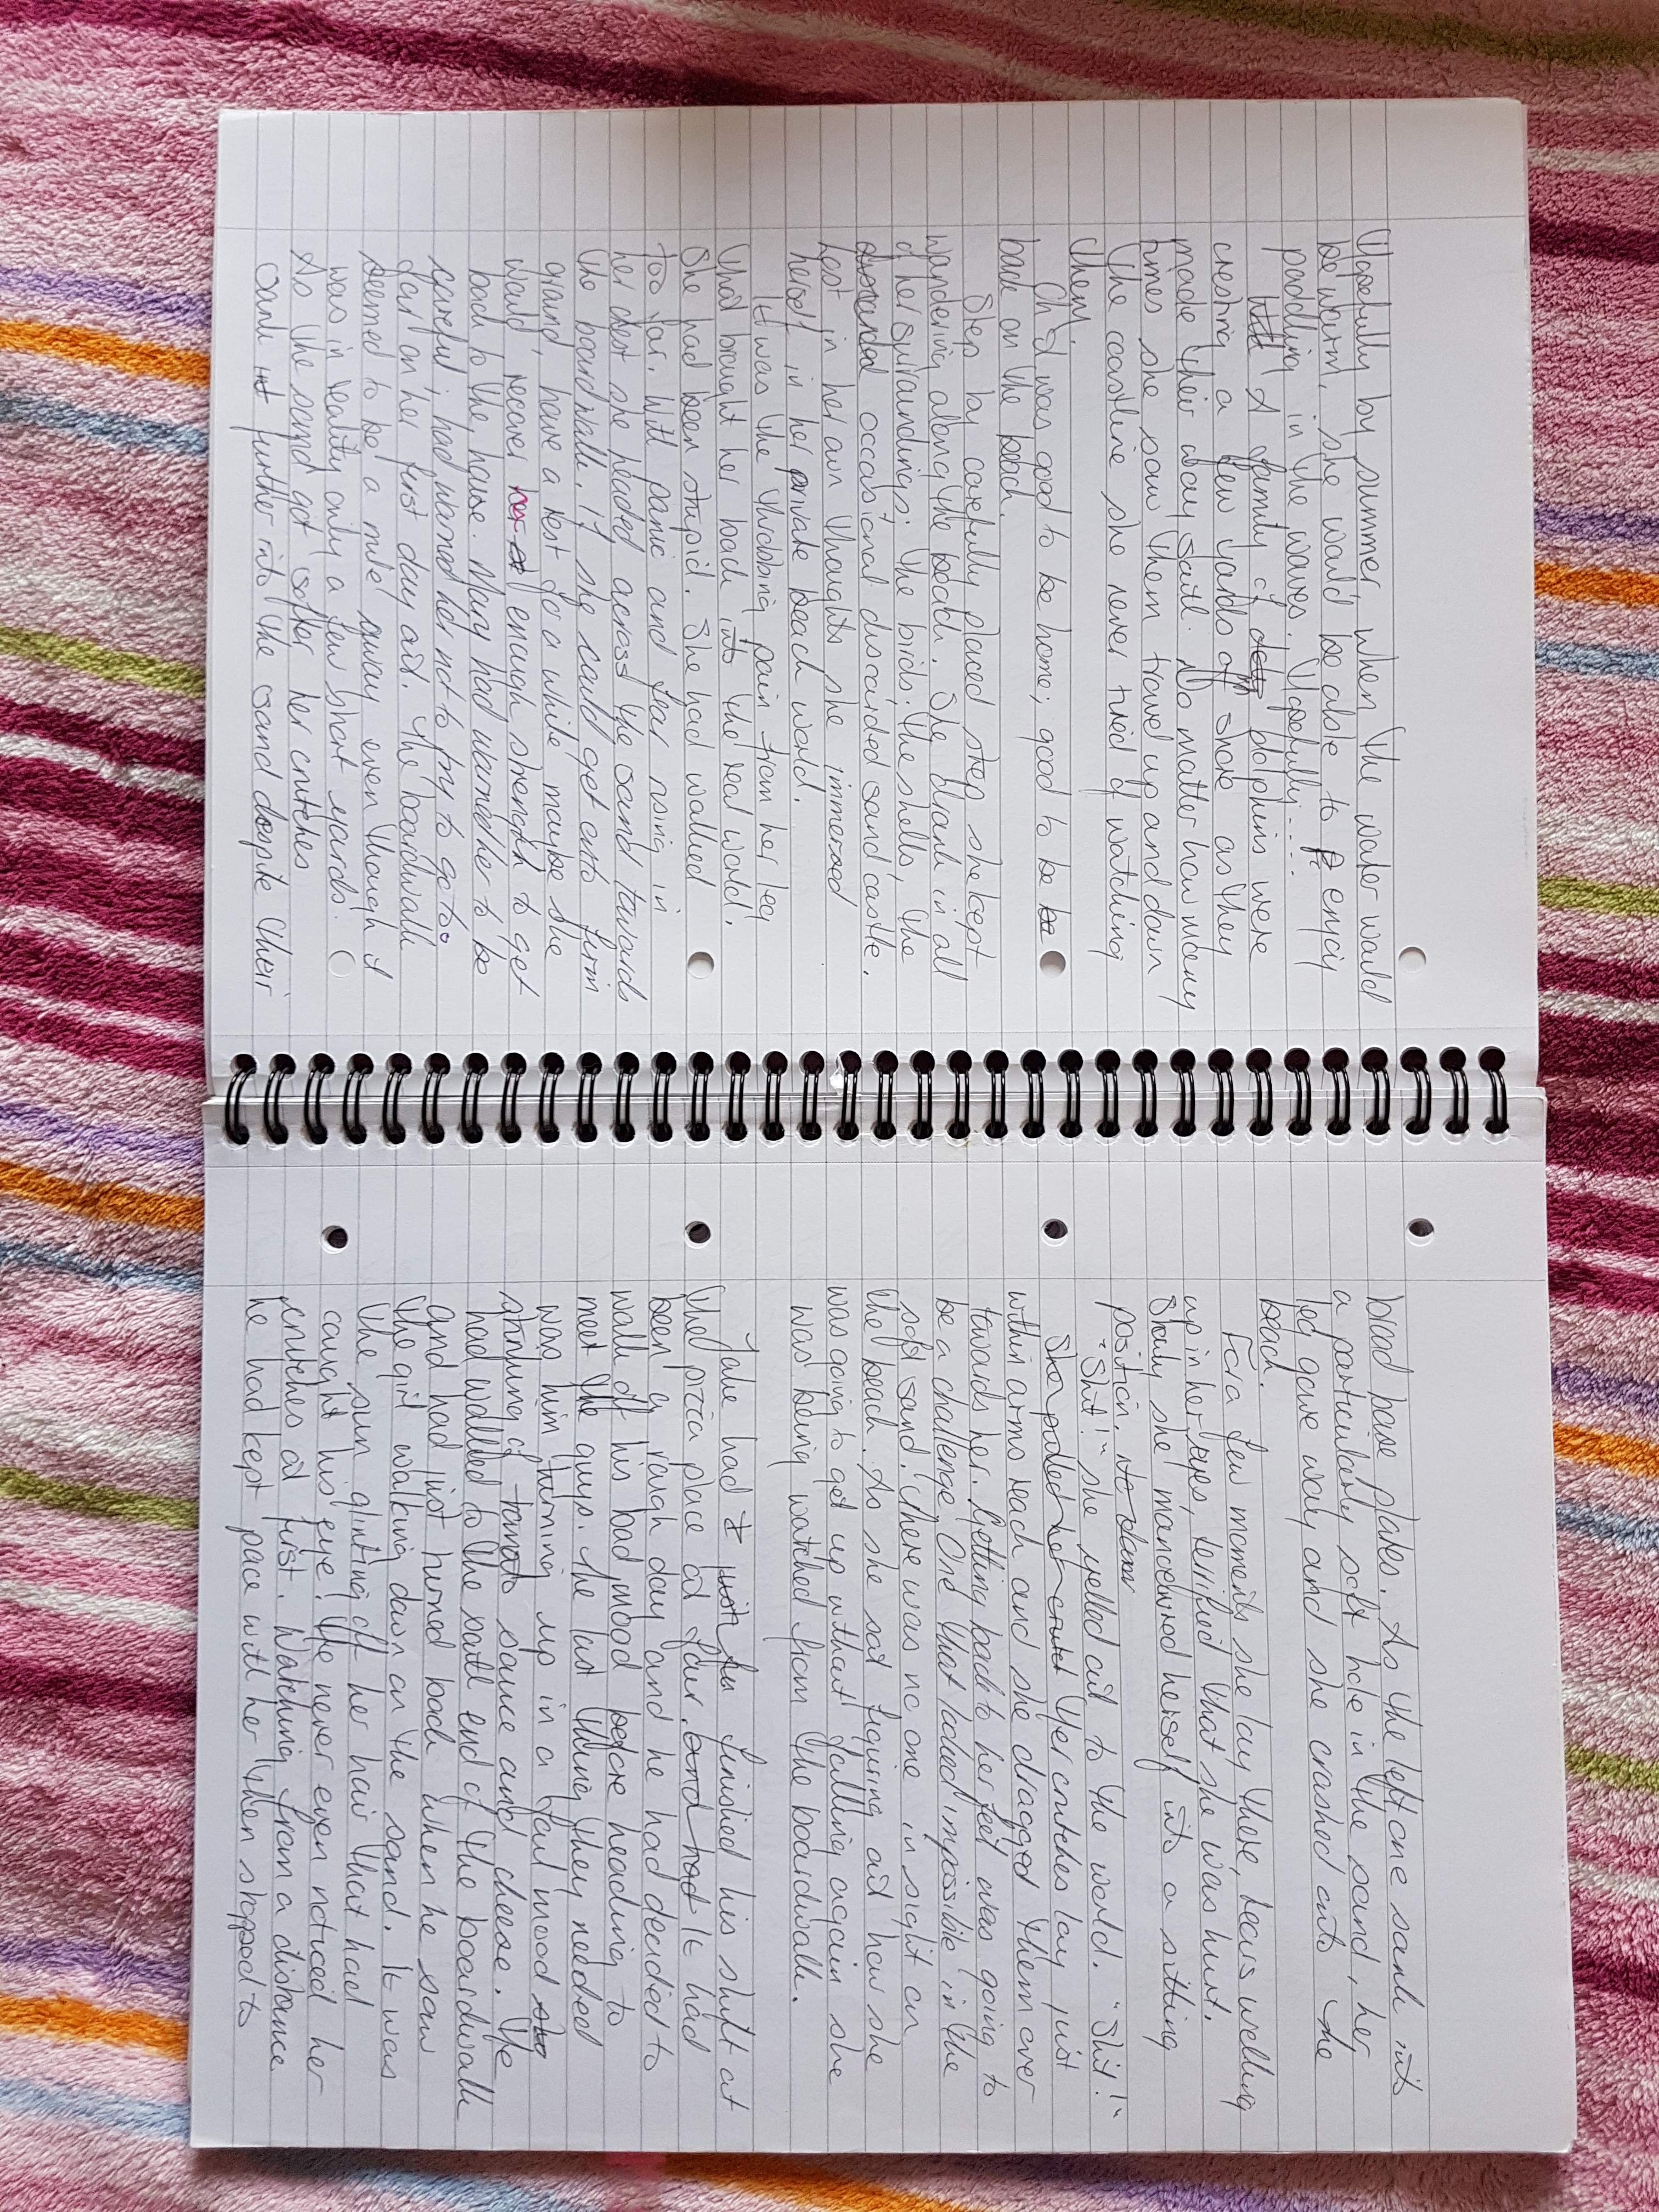 Hopefully by summer, when the water would
be warm, she would be able to enjoy
paddling in the waves. Hopefully....
A family of dolphins were
cresting a few yards off shore as they
made their way south. No matter how many
times she saw them travel up and down
the coastline she never tired of watching
them.
Oh it was good to be home; good to be
back on the beach.
Step by carefully placed step she kept
wandering along the beach. She drank in all
of her surroundings: the birds, the shells, the
occasional discarded sandcastle.
Lost in her own thoughts she immersed
herself in her private beach world.
It was the throbbing pain from her leg
that brought her back into the real world.
She had been stupid. She had walked
too far. With panic and fear rising in
her chest she headed across the sand towards
the boardwalk. If she could get onto firm
ground, have a rest for a while maybe she
would recover enough strength to get
back to the house. Mary had warned her to be
careful; had warned her not to try to go too
far on her first day out. The boardwalk
seemed to be a mile away even though it
was in reality only a few short yards.
As the sand got softer her crutches
sank further into the sand despite their
broad base plates. As the left one sank into
a particularly soft hole in the sand, her
leg gave way and she crashed onto the
beach.
For a few moments she lay there, tears welling
up in her eyes, terrified that she was hurt.
Slowly she manoeuvred herself into a sitting
position.
"Shit!" she yelled out to the world. "Shit!"
Her crutches lay just
within arms reach and she dragged them over
towards her. Getting back to her feet was going to
be a challenge. One that looked impossible in the
soft sand. There was no one in sight on
the beach. As she sat figuring out how she
was going to get up without falling again she
was being watched from the boardwalk.
Jake had finished his shift at
the pizza place at four. It had
been a rough day and he had decided to
walk off his bad mood before heading to
meet the guys. The last thing they needed
was him turning up in a foul mood
stinking of tomato sauce and cheese. He
had walked to the south end of the boardwalk
and had just turned back when he saw
the girl walking down on the sand. It was
the sun glinting off her hair that had
caught his eye! He never even noticed her
crutches at first. Watching from a distance
he had kept pace with her then stopped to